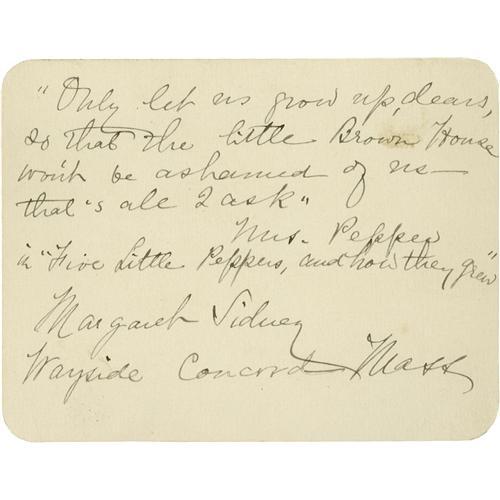 "Only let us grow up, dears,
so that the little Brown House
won't be ashamed of us—
that's all I ask"
Mrs. Pepper
in "Five Little Peppers, and how they grew"
Margaret Sidney
Wayside Concord Mass